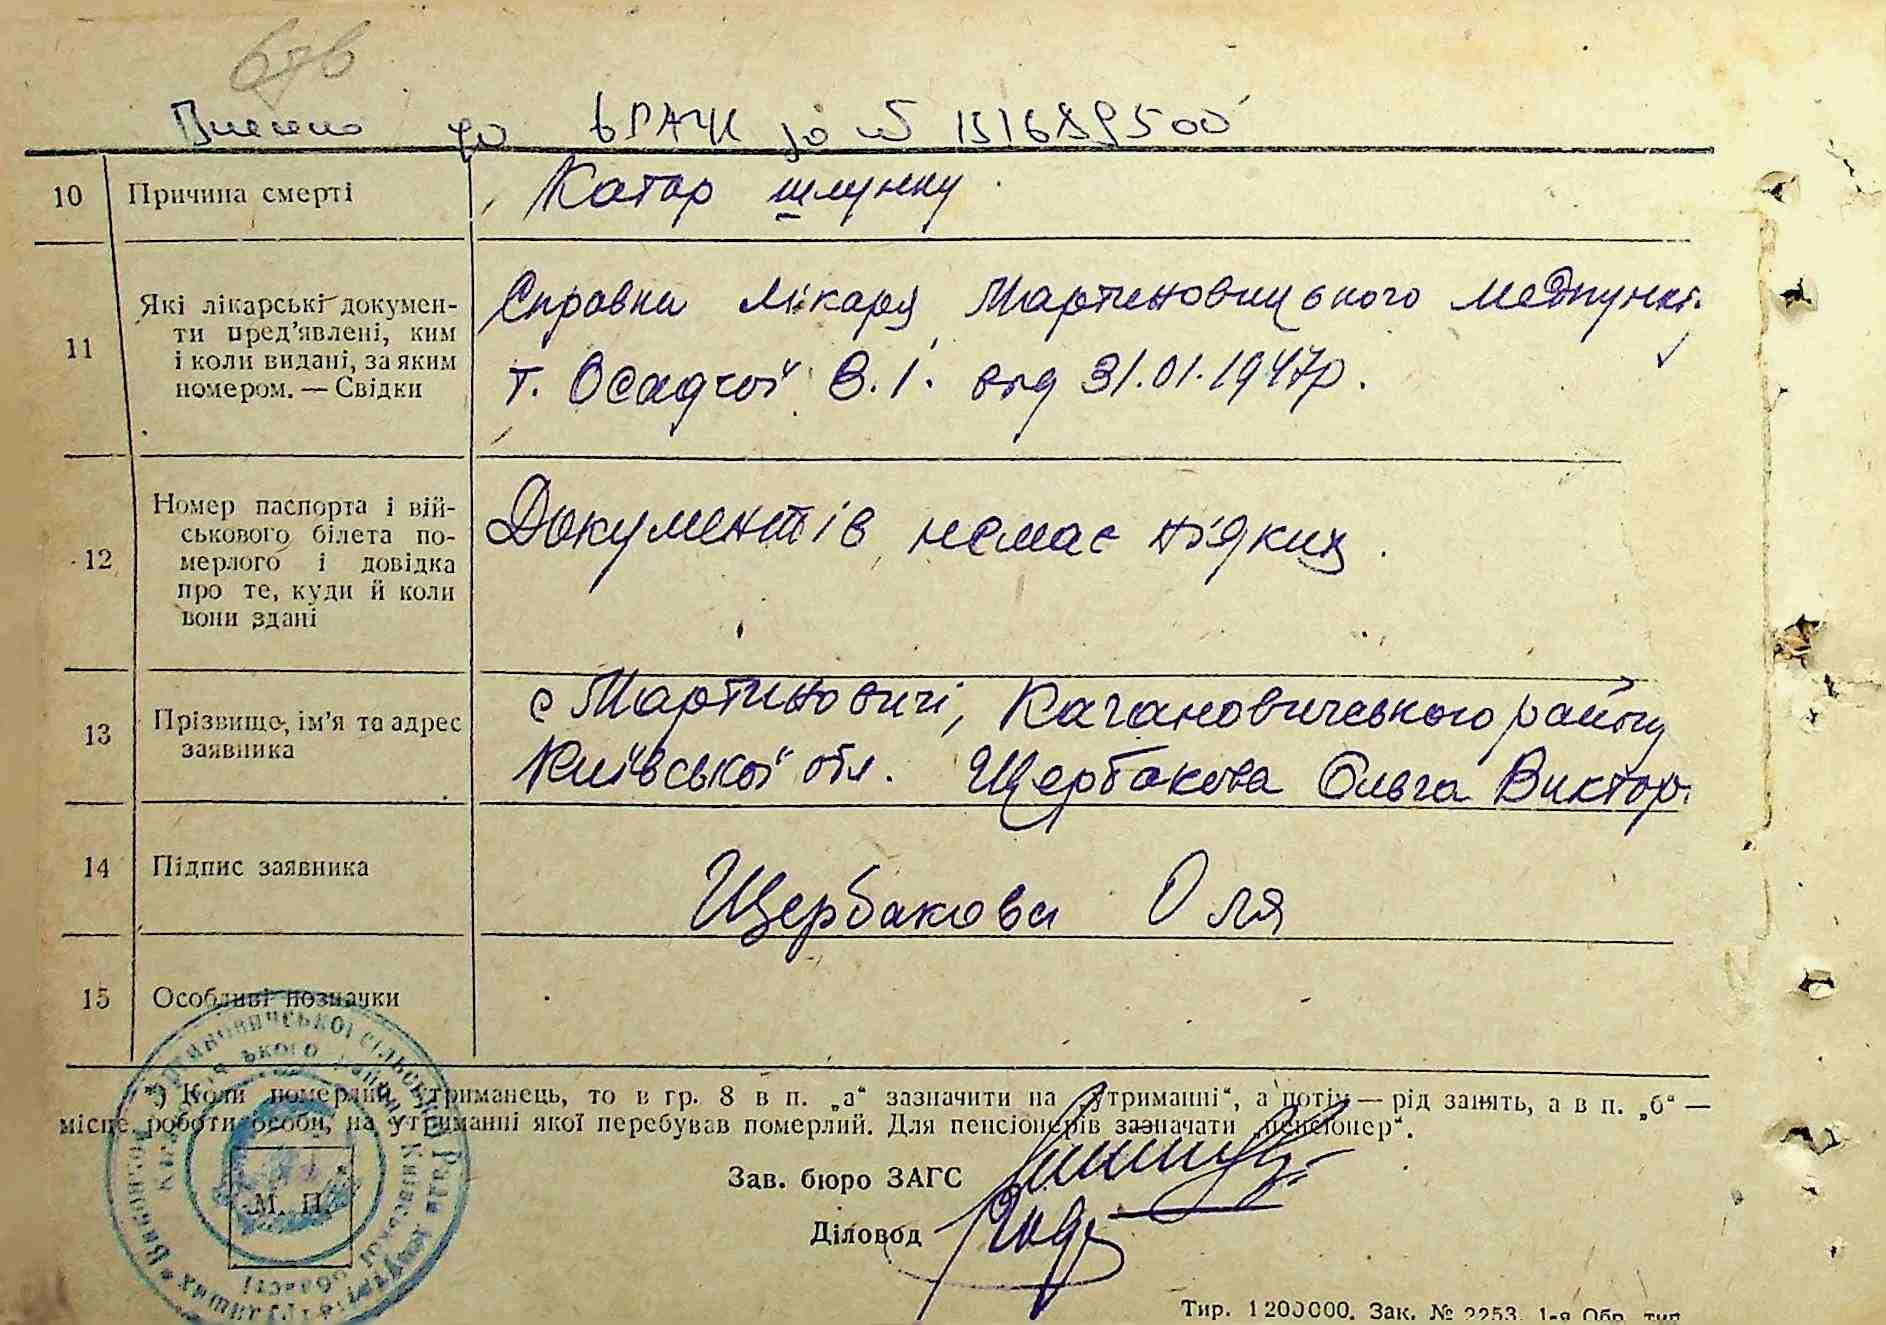 Внесено до
10 Причина смерті Катар шлунку
11 Які лікарські докумен-
ти пред'явлені, ким
і коли видані, за яким
номером. — Свідки
Справки лікаря Мартиновицького медпункт.
т. Осадчої В.І. від 31.01.1947р.
12 Номер паспорта і вій-
ськового білета по-
мерлого і довідка
про те, куди й коли
вони здані
Документів немає ніяких.
13 Прізвище, ім'я та адрес
заявника
с Мартиновичі, Кагановичського району
Київської обл. Щербакова Ольга Виктор.
14 Підпис заявника Щербакова Оля
15 Особливі позначки
*) Коли померлий утриманець, то в гр. 8 в п. „а“ зазначити на „утриманні“, а потім — рід занять, а в п. „б“ —
місце роботи особи, на утриманні якої перебував померлий. Для пенсіонерів зазначати „пенсіонер“.
Зав. бюро ЗАГС
Діловод
М. П.
Тир. 1200000. Зак. № 2253. 1-я Обр. тип.